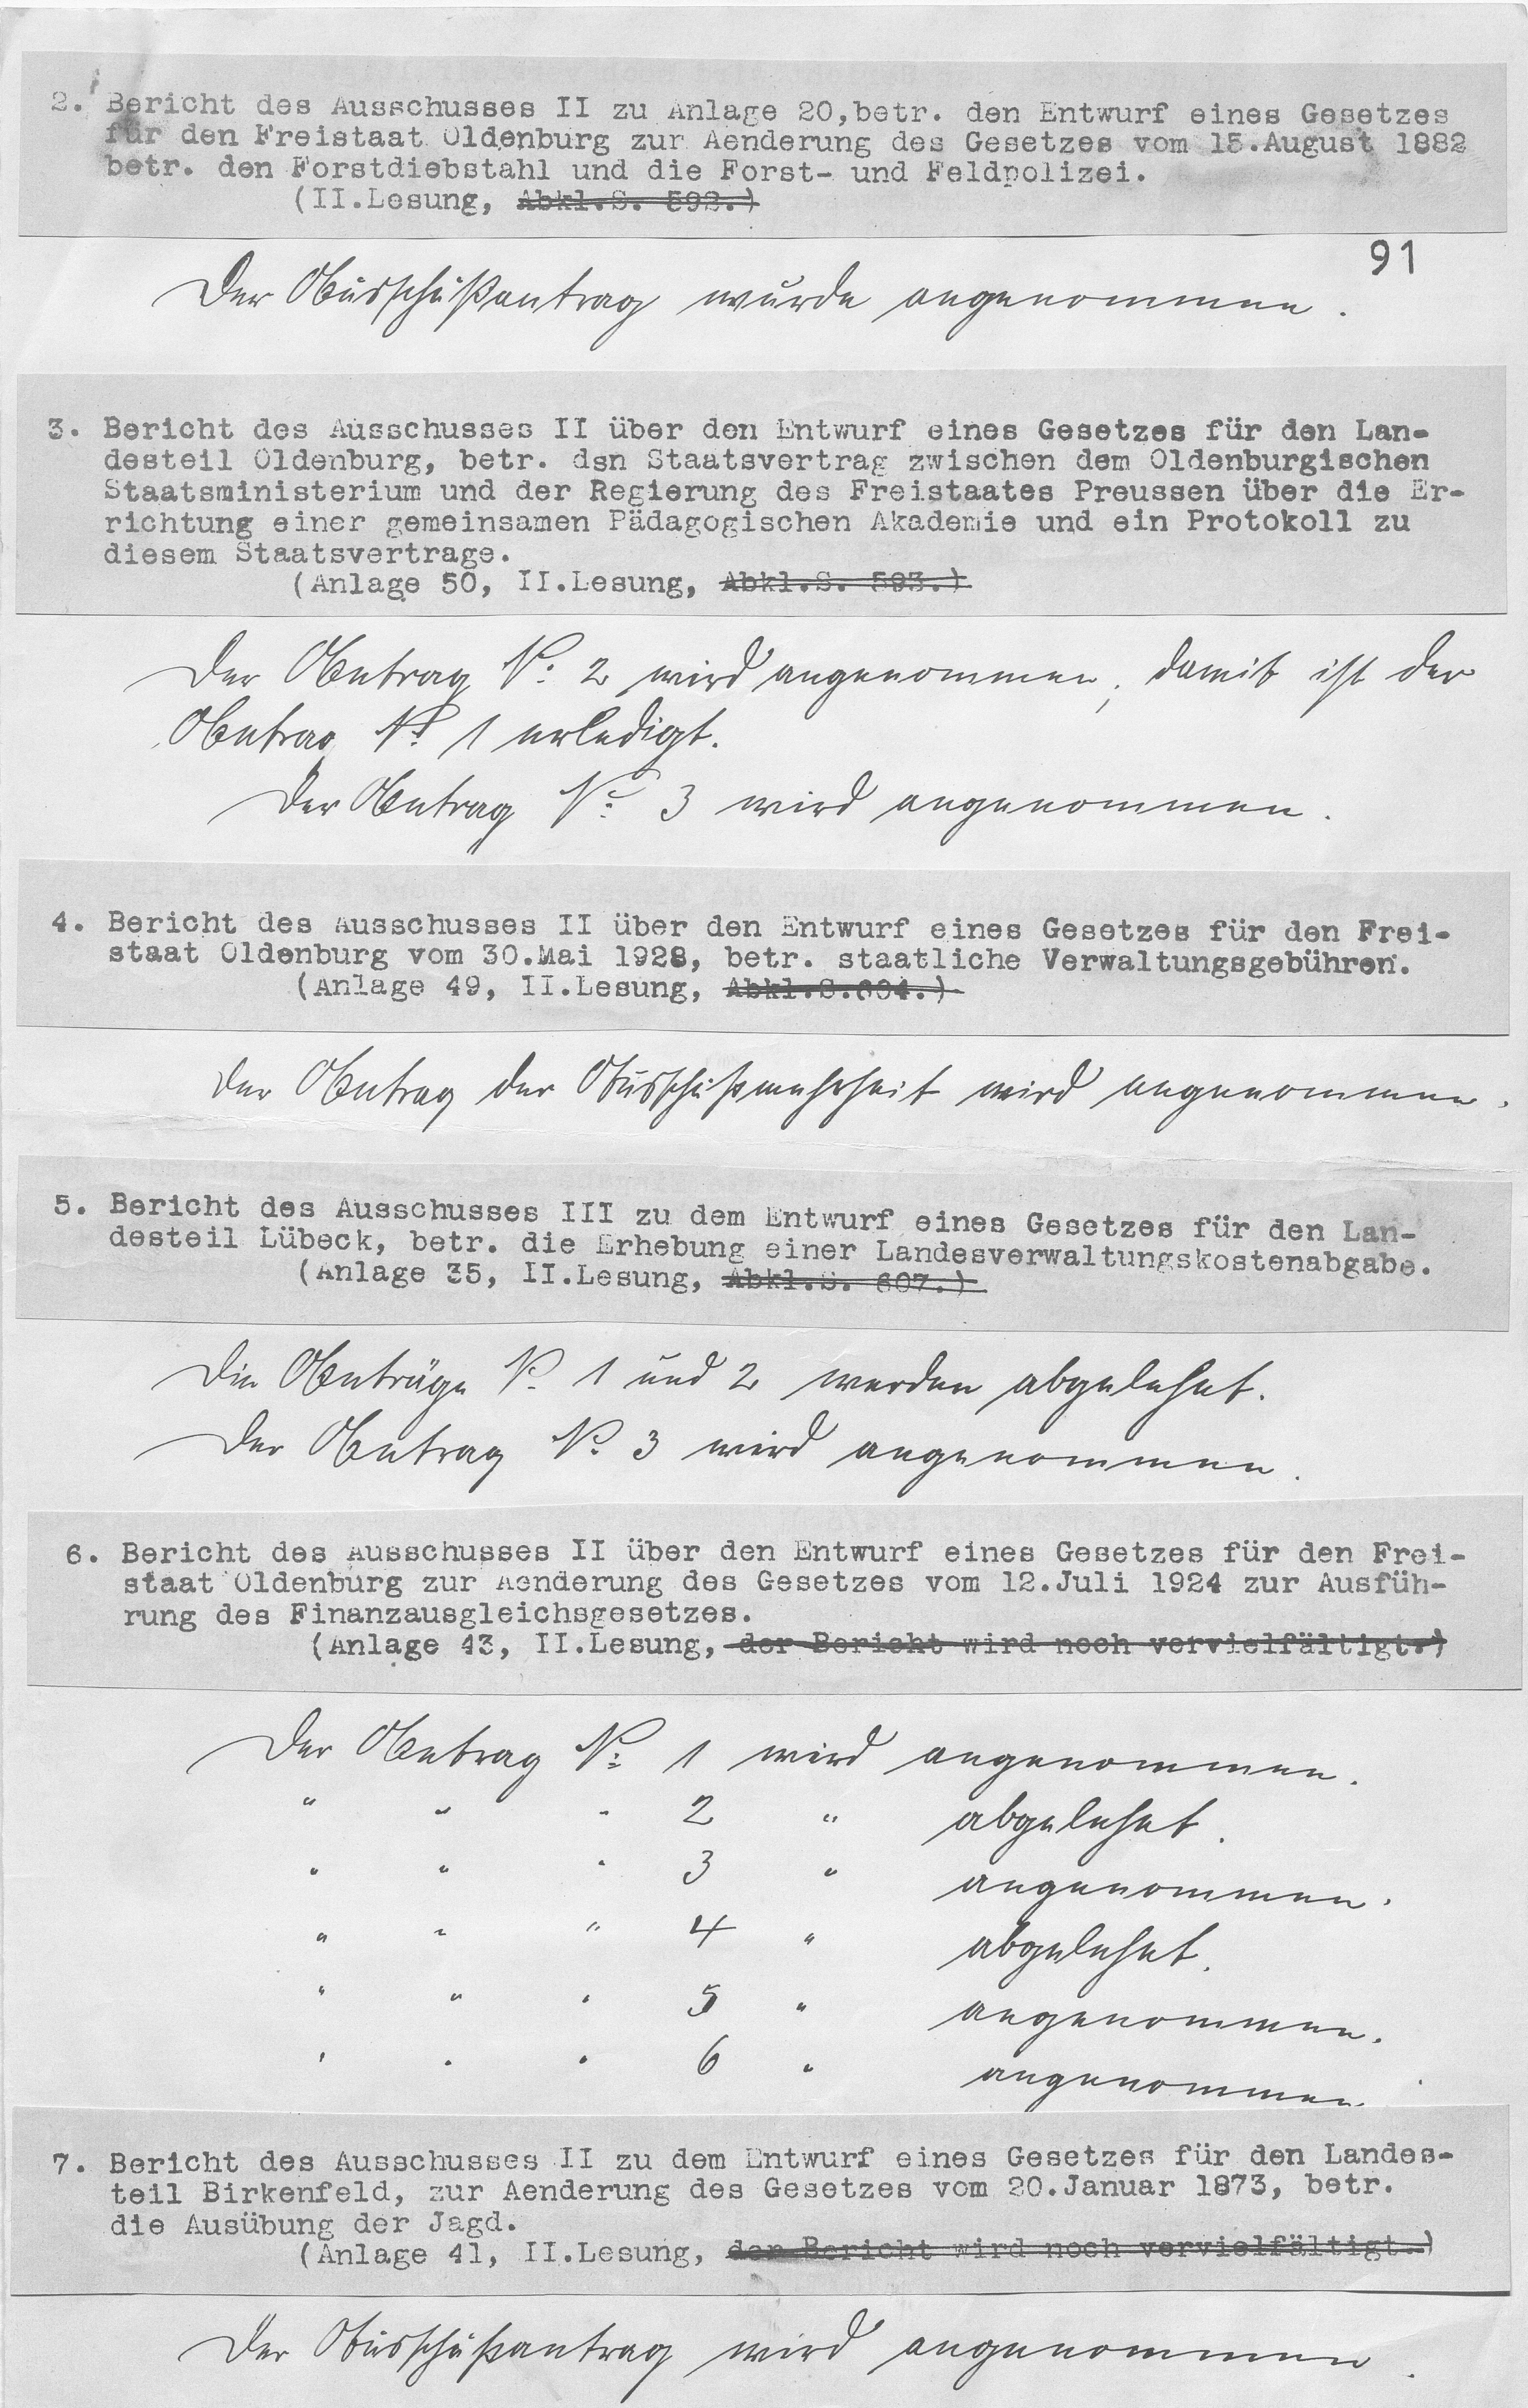 2. Bericht des Ausschusses II zu Anlage 20,betr. den Entwurf eines Gesetzes
für den Freistaat Oldenburg zur Aenderung des Gesetzes vom 15.August 1882
betr. den Forstdiebstahl und die Forst- und Feldpolizei.
(II.Lesung, Abkl.S. 592.)
91
Der Ausschußantrag wurde angenommen.
3. Bericht des Ausschusses II über den Entwurf eines Gesetzes für den Lan-
desteil Oldenburg, betr. dsn Staatsvertrag zwischen dem Oldenburgischen
Staatsministerium und der Regierung des Freistaates Preussen über die Er-
richtung einer gemeinsamen Pädagogischen Akademie und ein Protokoll zu
diesem Staatsvertrage.
(Anlage 50, II.Lesung, Abkl.S. 593.)
Der Antrag No. 2 wird angenommen, damit ist der
Antrag No. 1 erledigt.
Der Antrag No. 3 wird angenommen.
4. Bericht des Ausschusses II über den Entwurf eines Gesetzes für den Frei-
staat Oldenburg vom 30.Mai 1928, betr. staatliche Verwaltungsgebühren.
(Anlage 49, II.Lesung, Abkl.S.604.)
Der Antrag der Ausschußmehrheit wird angenommen.
5. Bericht des Ausschusses III zu dem Entwurf eines Gesetzes für den Lan-
desteil Lübeck, betr. die Erhebung einer Landesverwaltungskostenabgabe.
(Anlage 35, II.Lesung, Abkl.S. 607.)
Die Anträge No. 1 und 2 werden abgelehnt.
Der Antrag No. 3 wird angenommen.
6. Bericht des Ausschusses II über den Entwurf eines Gesetzes für den Frei-
staat Oldenburg zur Aenderung des Gesetzes vom 12.Juli 1924 zur Ausfüh-
rung des Finanzausgleichsgesetzes.
(Anlage 43, II.Lesung, der Bericht wird noch vervielfältigt.)
Der Antrag No. 1 wird angenommen.
" " " 2 " abgelehnt.
" " " 3 " angenommen.
" " " 4 " abgelehnt.
" " " 5 " angenommen.
" " " 6 " angenommen.
7. Bericht des Ausschusses II zu dem Entwurf eines Gesetzes für den Landes-
teil Birkenfeld, zur Aenderung des Gesetzes vom 20.Januar 1873, betr.
die Ausübung der Jagd.
(Anlage 41, II.Lesung, der Bericht wird noch vervielfältigt.)
Der Ausschußantrag wird angenommen.